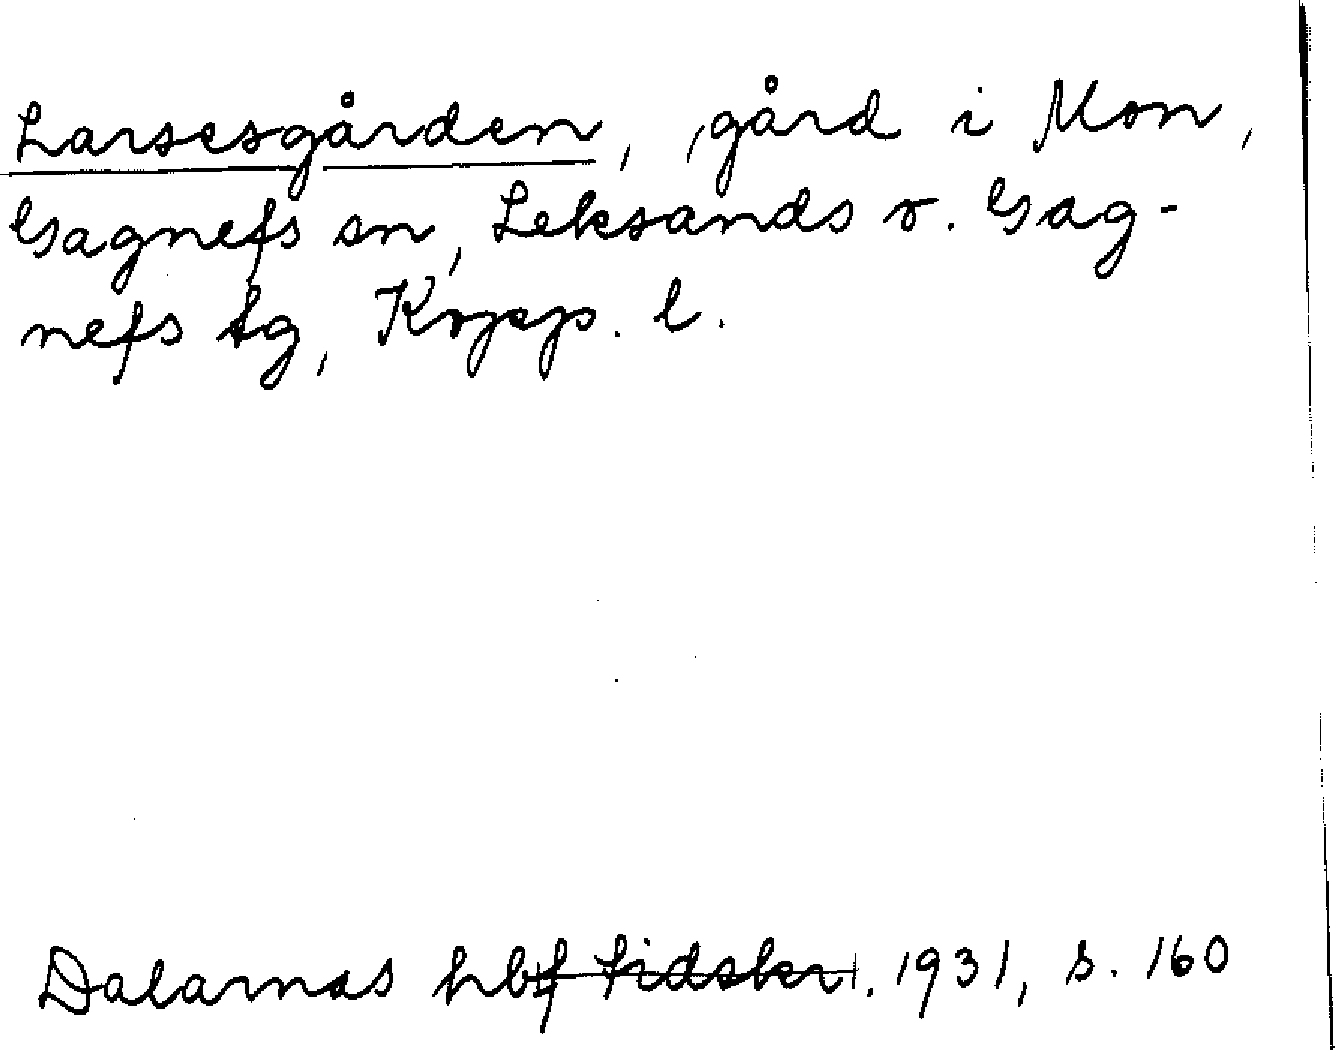 Larsesgården, gård i Mon,
Gagnefs sn, Leksands o. Gag-
nefs tg, Kopp. l.
Dalarnas hbf tidskr. 1931, s. 160